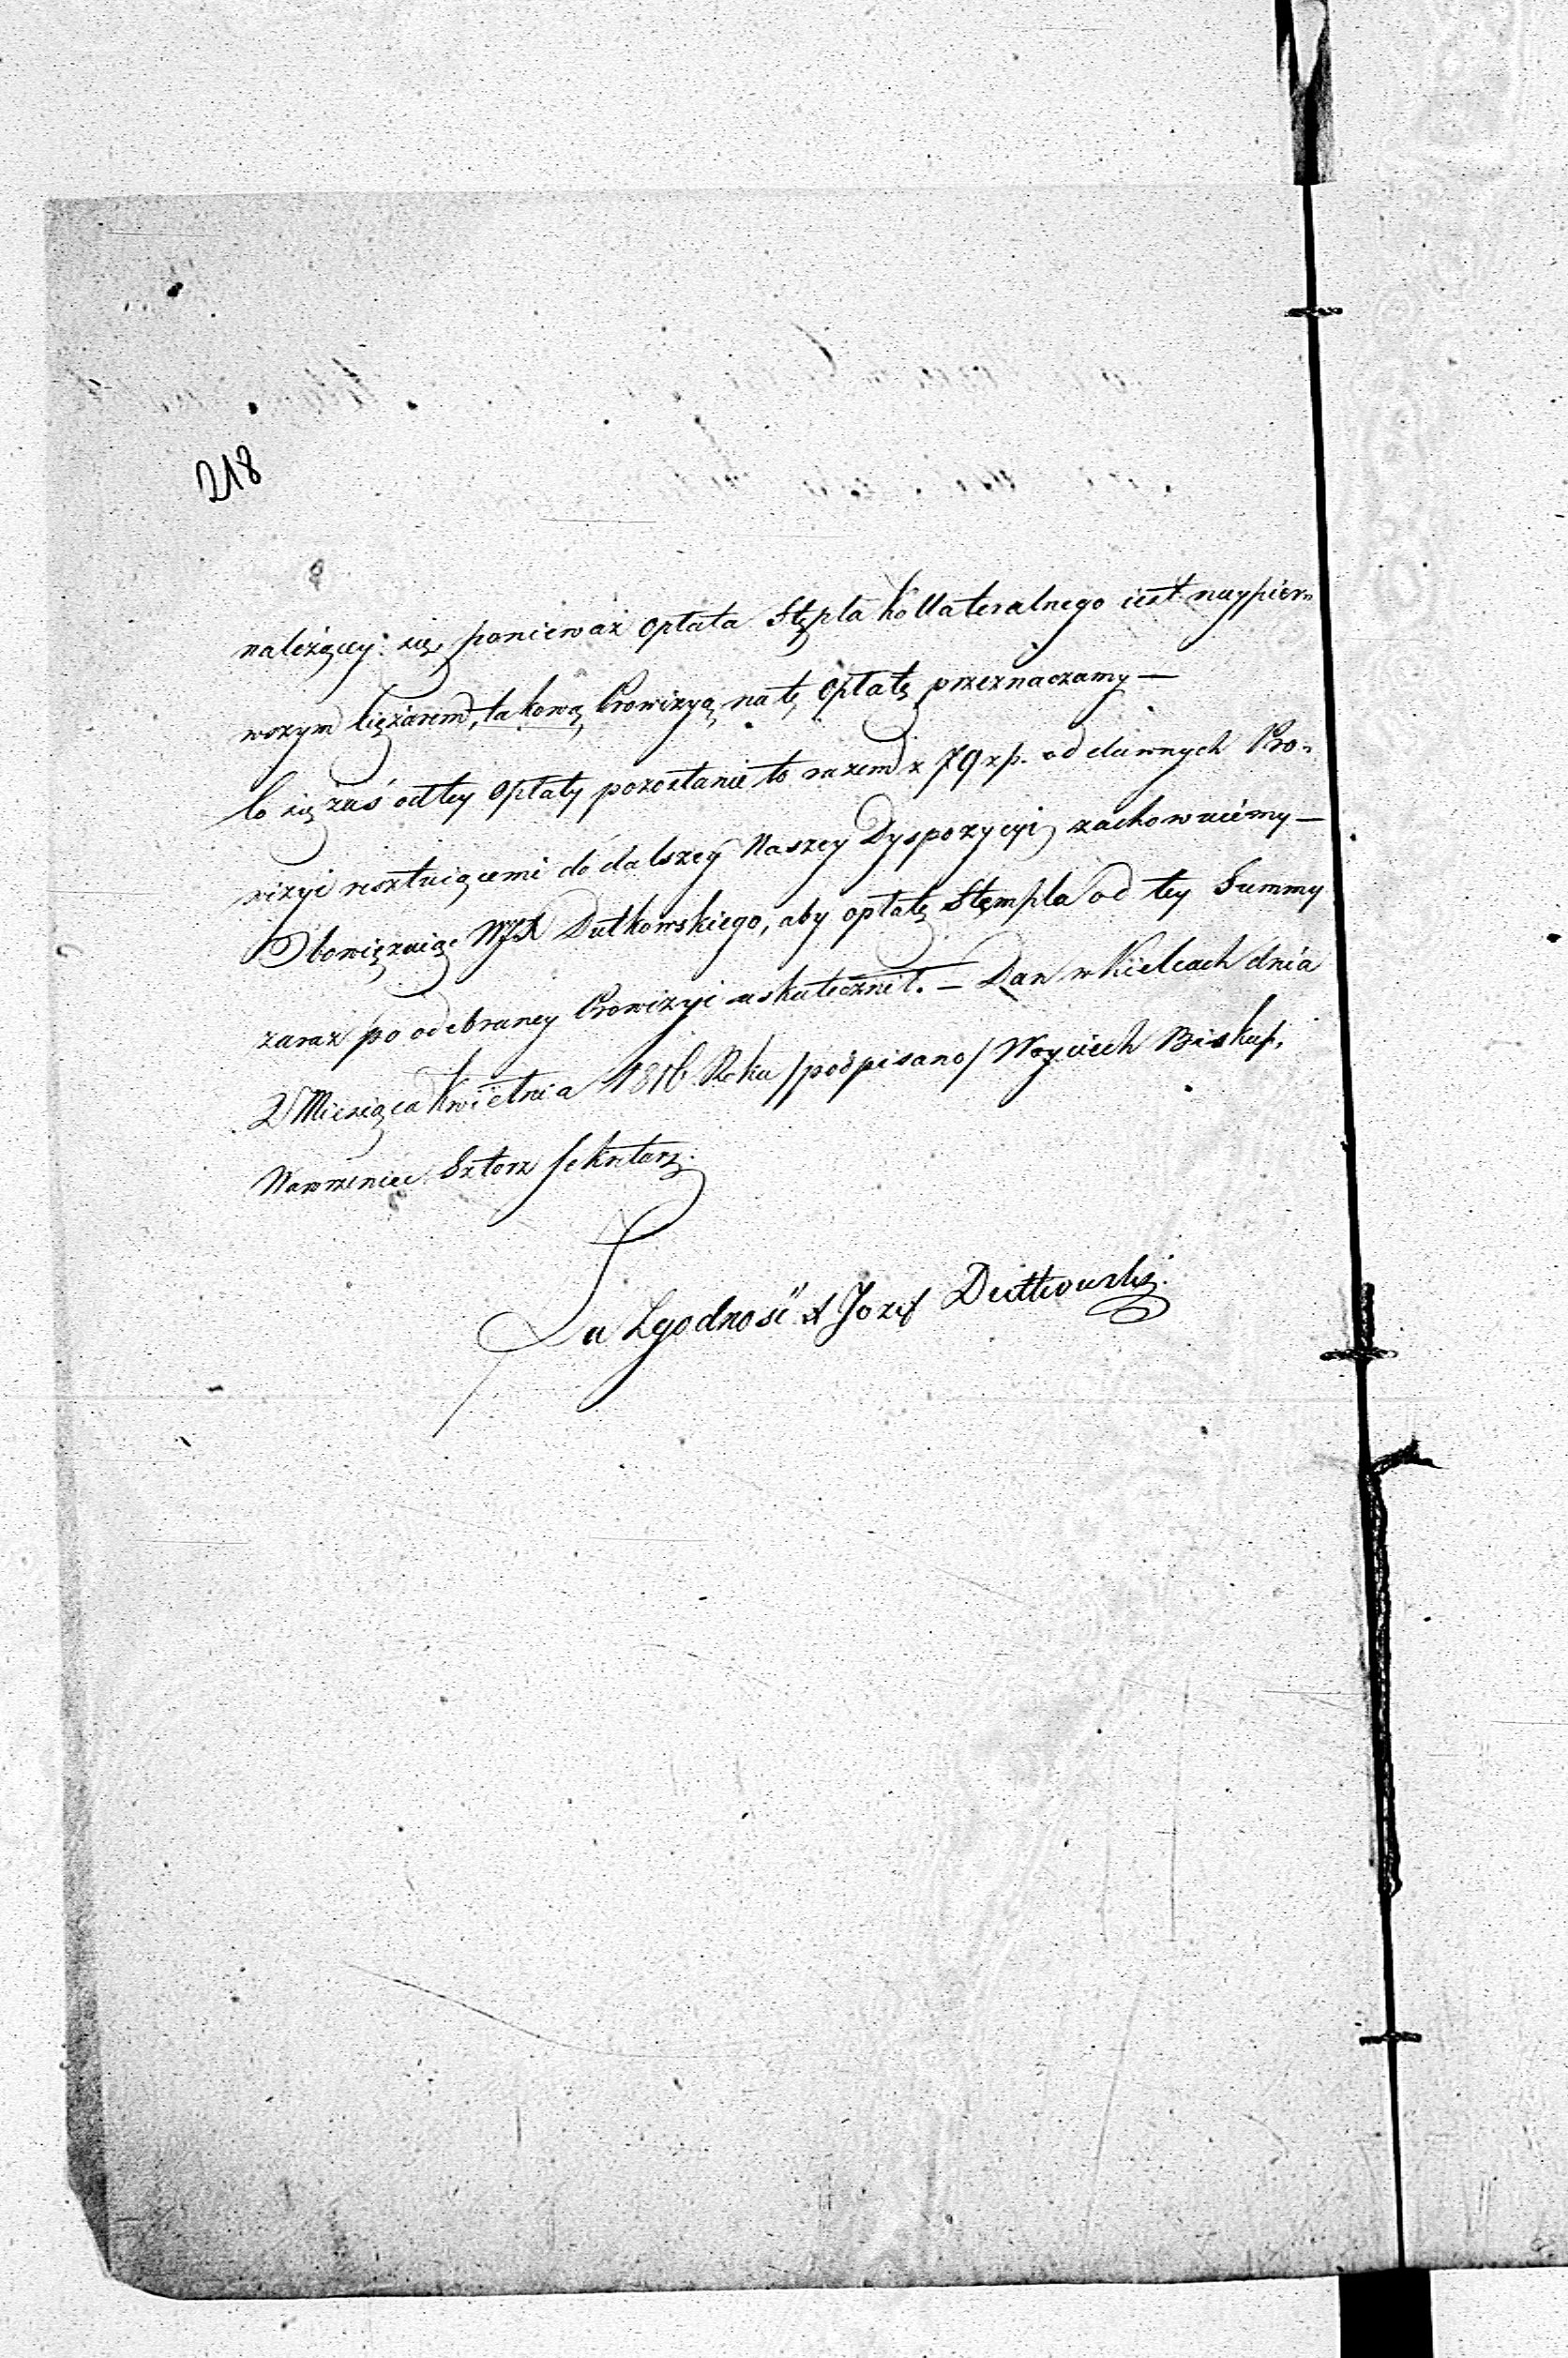 218
należącey się, ponieważ opłata Stępla Kollateralnego iest naypier=
wszym Ciężarem, takową Prowizyą na tę Opłatę przeznaczamy —
Co się zaś od tey Opłaty pozostanie to razem z 79 zp. od dawnych Pro=
wizyi resztuiącemi do dalszey Naszey Dyspozycyi zachowuiemy —
Obowięzuiąc WJX Dutkowskiego, aby opłatę Stempla od tey Summy
zaraz po odebraney Prowizyi uskutecznił. — Dan w Kielcach dnia
2 Miesiąca Kwietnia 1816 Roku /podpisano/ Woyciech Biskup,
Wawrzeniec Sztorz Sekretarz.
Za Zgodność X Jozef Dutkowski.